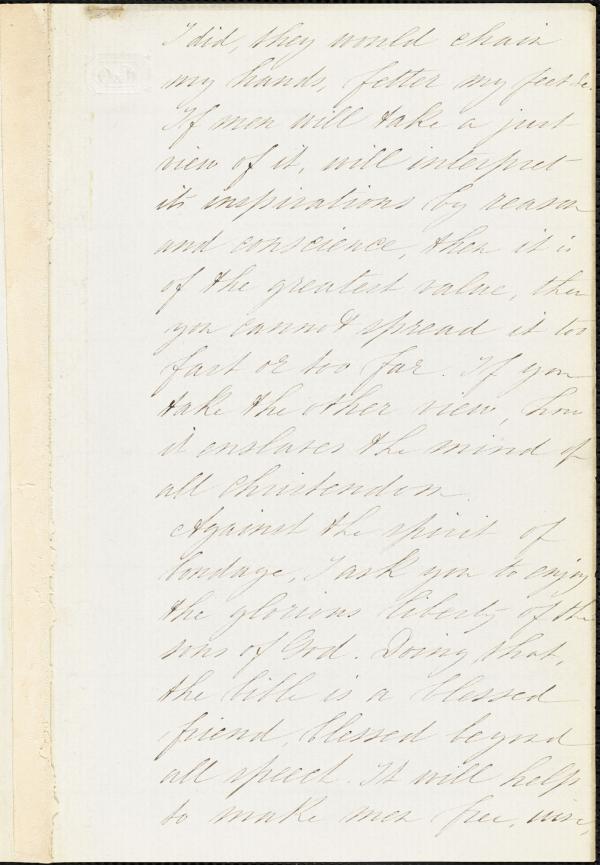 I did, they would chain
my hands, fetter my feet &c.
If men will take a just
view of it, will interpret
its inspirations by reason
and conscience, then it is
of the greatest value, then
you cannot spread it too
fast or too far. If you
take the other view, how
it enslaves the mind of
all Christendom.
Against the spirit of
bondage, I ask you to enjoy
the glorious liberty of the
sons of God. Doing that,
the bible is a blessed
friend, blessed beyond
all speech. It will help
to make men free, wise,